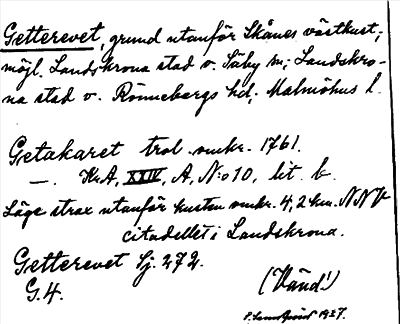 Getterevet, grund utanför Skånes västkust;
möjl. Landskrona stad o. Säby sn; Landskro-
na stad o. Rönnebergs hd; Malmöhus l.
Getakaret trol. omkr. 1761.
—. Kr.A, XXIV, A, N:o 10, lit. b.
Läge strax utanför kusten omkr. 4,2 km. NNV
citadellet i Landskrona.
Getterevet Sj. 272.
G. 4.
(Vänd!)
1927.